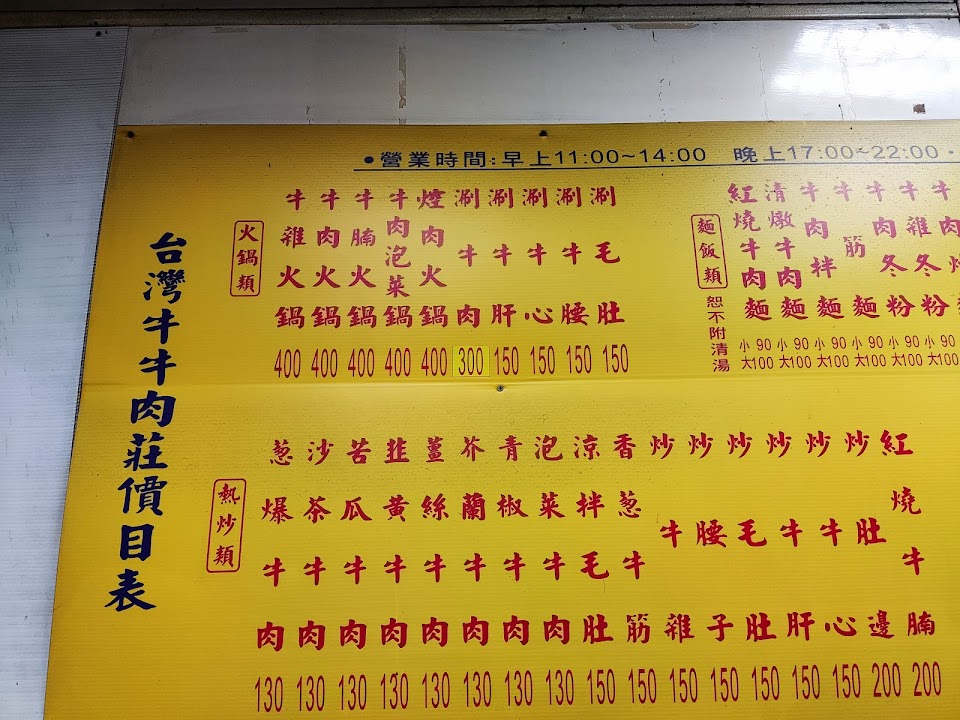 •營業時間:早上11:00~14:00 晚上17:00~22:00•
台灣牛牛肉莊價目表
火鍋類
牛雜火鍋 400
牛肉火鍋 400
牛腩火鍋 400
牛肉泡菜鍋 400
焢肉火鍋 400
涮牛肉 300
涮牛肝 150
涮牛心 150
涮牛腰 150
涮毛肚 150
麵飯類
恕不附清湯
紅燒牛肉麵 小90 大100
清燉牛肉麵 小90 大100
牛肉拌麵 小90 大100
牛筋麵 小90 大100
牛肉冬粉 小90 大100
牛雜冬粉 小90 大100
牛肉
熱炒類
葱爆牛肉 130
沙茶牛肉 130
苦瓜牛肉 130
韭黃牛肉 130
薑絲牛肉 130
芥蘭牛肉 130
青椒牛肉 130
泡菜牛肉 130
涼拌毛肚 150
香葱牛筋 150
炒牛雜 150
炒腰子 150
炒毛肚 150
炒牛肝 150
炒牛心 150
炒肚邊 200
紅燒牛腩 200